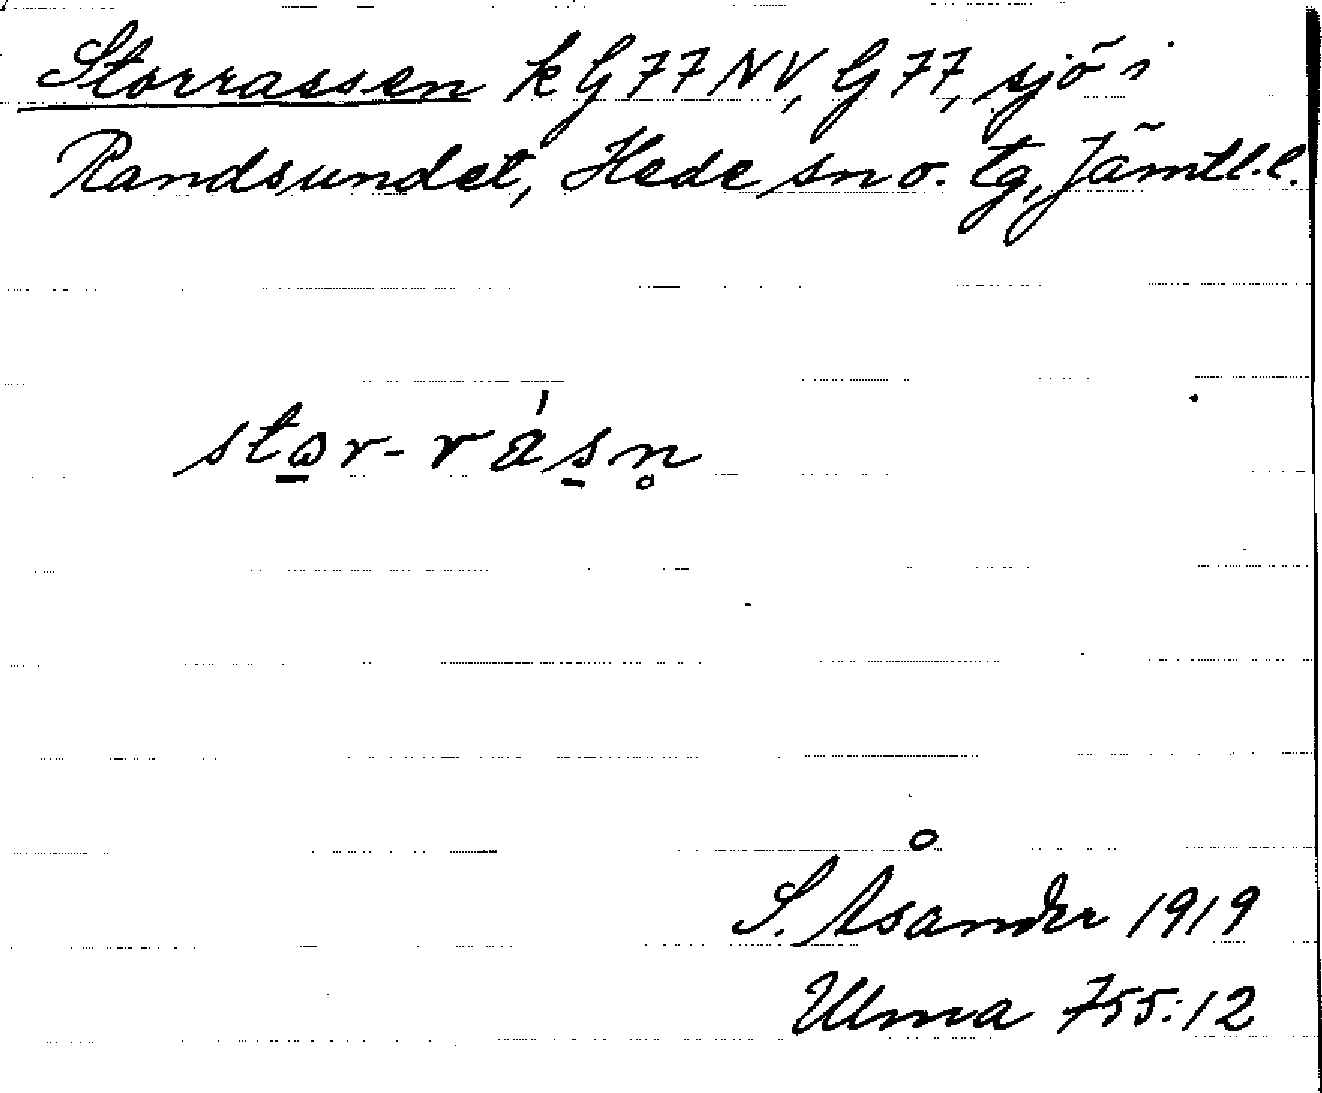 Storrassen k G 77 NV, G 77, sjö i
Randsundet, Hede sn o. tg, Jämtl. l.
stɷ̱r-rás̱n̥
S. Åsander 1919
Ulma 755:12